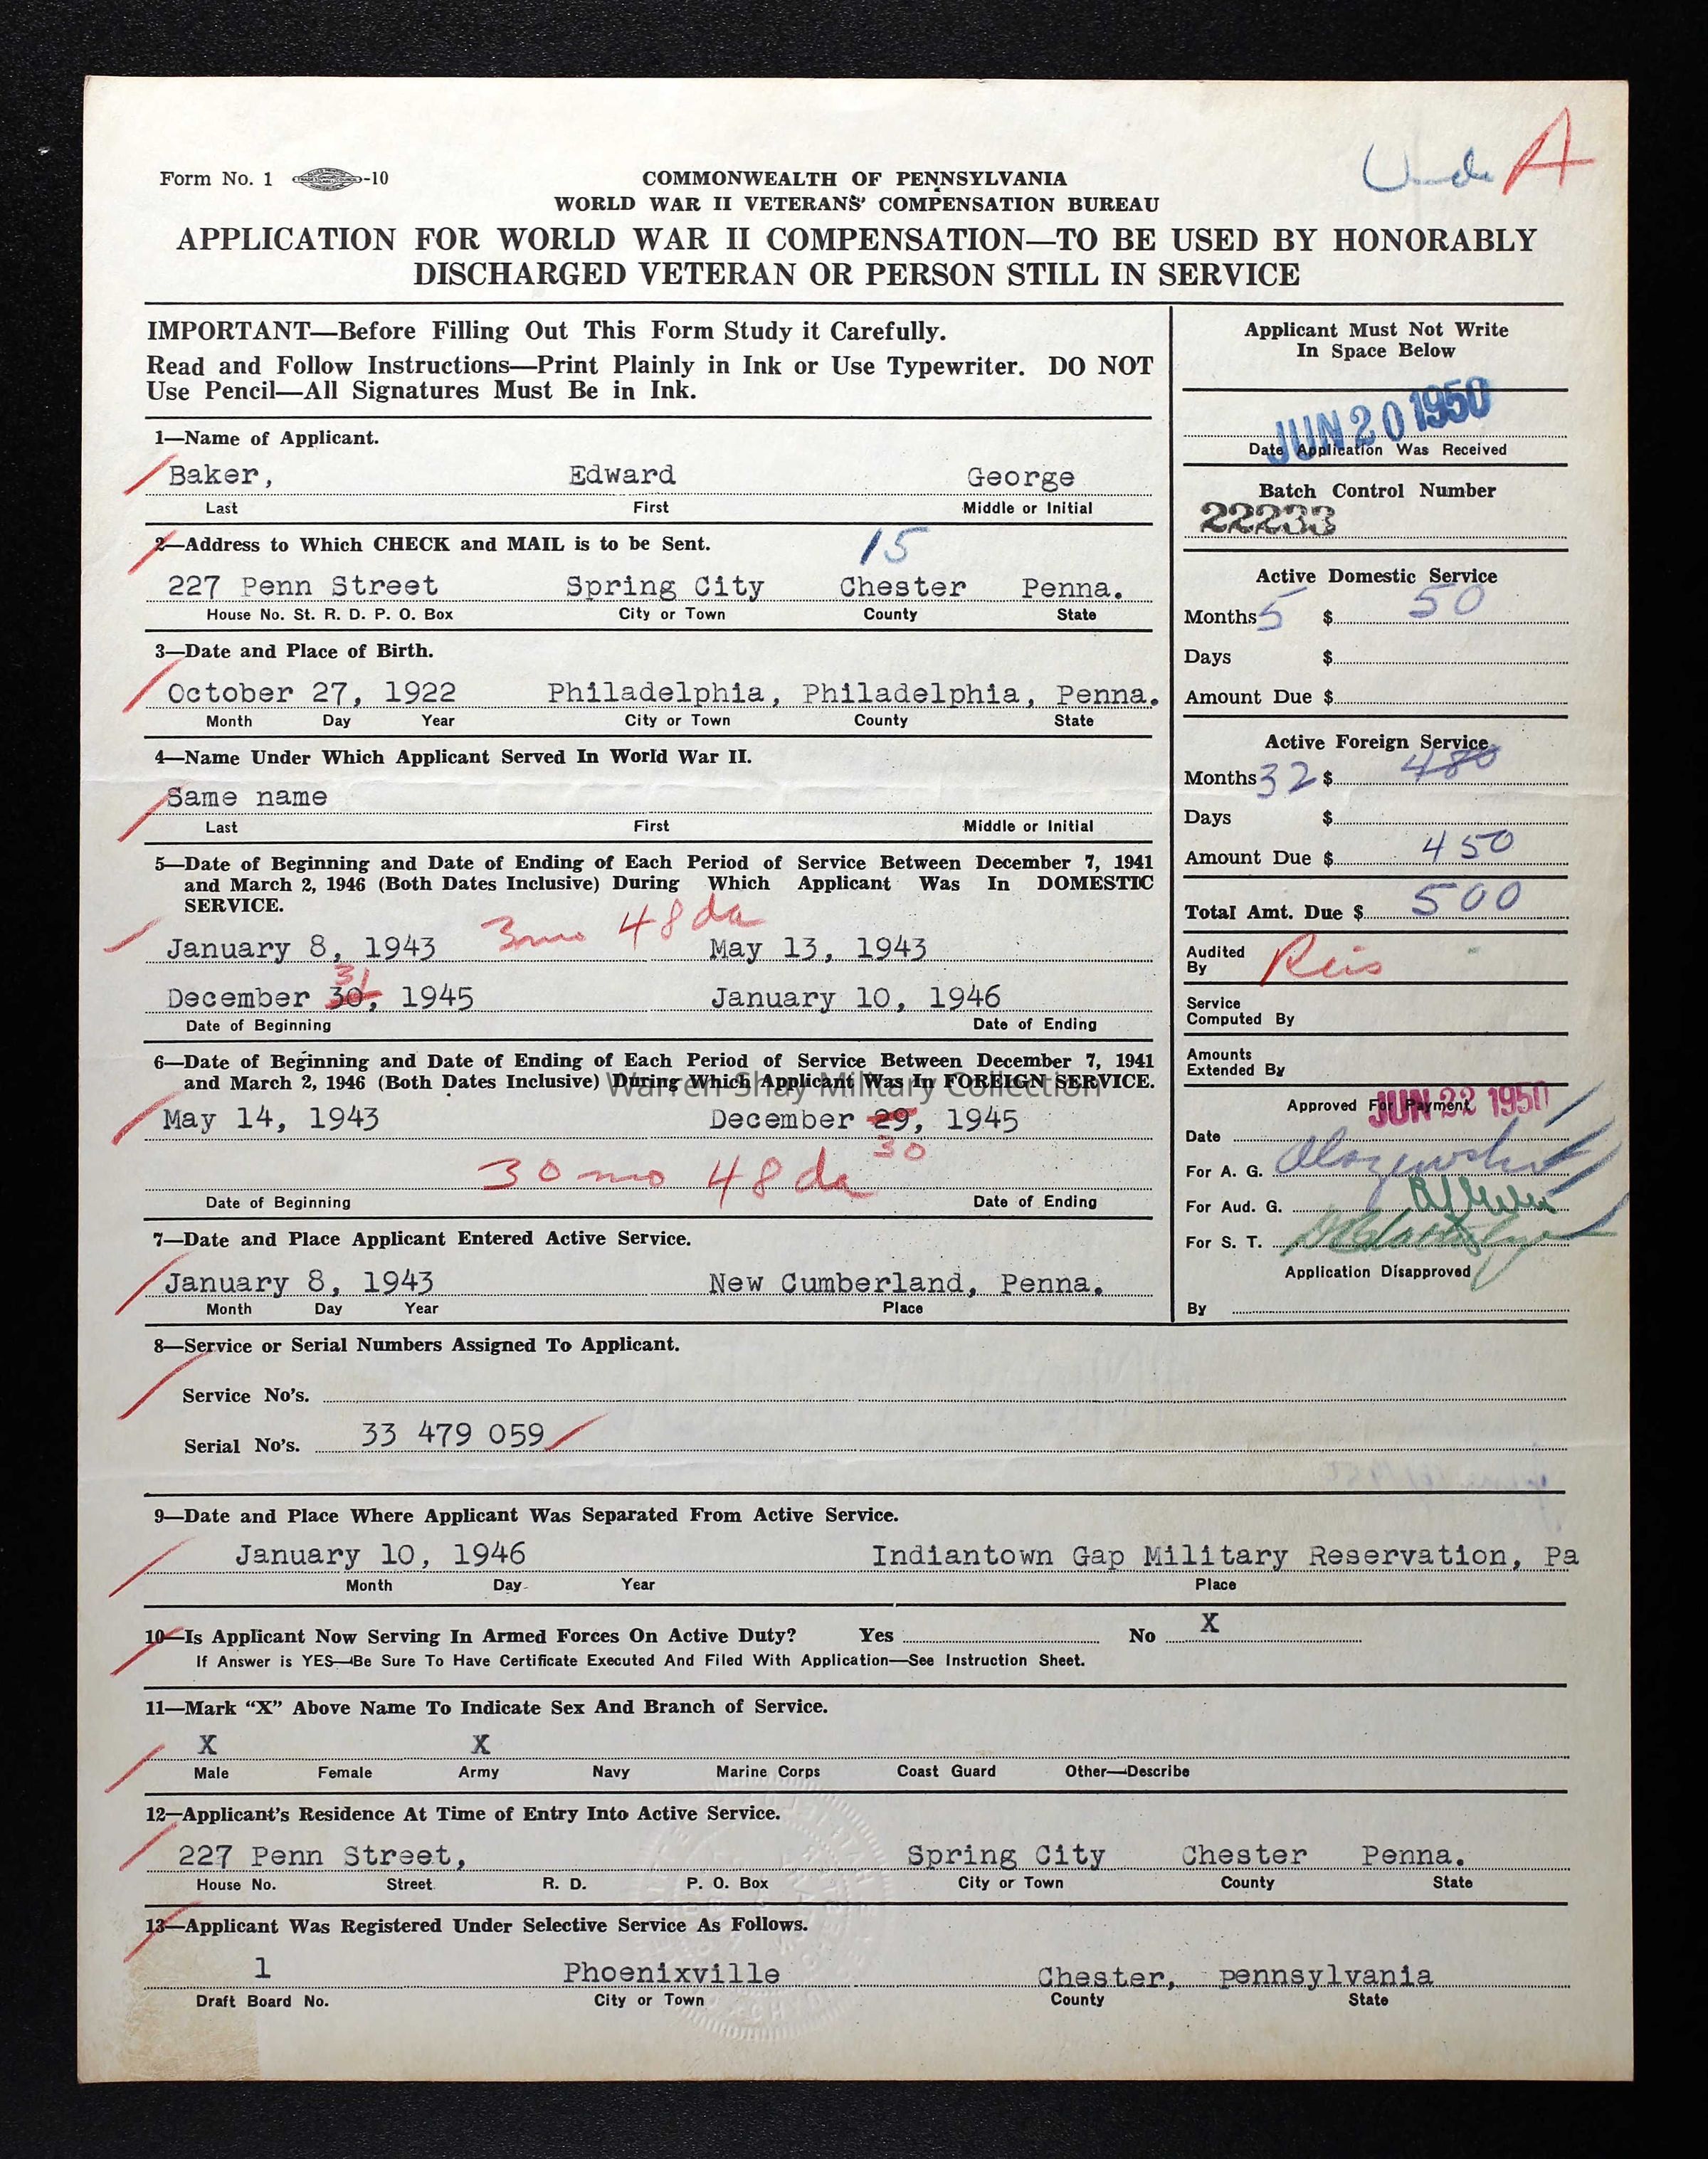 Form No. 1 -10
COMMONWEALTH OF PENNSYLVANIA
WORLD WAR II VETERANS' COMPENSATION BUREAU
A
APPLICATION FOR WORLD WAR II COMPENSATION—TO BE USED BY HONORABLY
DISCHARGED VETERAN OR PERSON STILL IN SERVICE
IMPORTANT—Before Filling Out This Form Study it Carefully.
Read and Follow Instructions—Print Plainly in Ink or Use Typewriter. DO NOT
Use Pencil—All Signatures Must Be in Ink.
1—Name of Applicant.
Baker, Edward George
Last First Middle or Initial
2—Address to Which CHECK and MAIL is to be Sent.
15
227 Penn Street Spring City Chester Penna.
House No. St. R. D. P. O. Box City or Town County State
3—Date and Place of Birth.
October 27, 1922 Philadelphia, Philadelphia, Penna.
Month Day Year City or Town County State
4—Name Under Which Applicant Served In World War II.
Same name
Last First Middle or Initial
5—Date of Beginning and Date of Ending of Each Period of Service Between December 7, 1941
and March 2, 1946 (Both Dates Inclusive) During Which Applicant Was In DOMESTIC
SERVICE.
3mo 48da
January 8, 1943 May 13, 1943
31
December 30, 1945 January 10, 1946
Date of Beginning Date of Ending
6—Date of Beginning and Date of Ending of Each Period of Service Between December 7, 1941
and March 2, 1946 (Both Dates Inclusive) During Which Applicant Was In FOREIGN SERVICE.
Warren Shay Military Collection
May 14, 1943 December 29, 1945
30
30 mo 48 da
Date of Beginning Date of Ending
7—Date and Place Applicant Entered Active Service.
January 8, 1943 New Cumberland, Penna.
Month Day Year Place
Applicant Must Not Write
In Space Below
JUN 20 1950
Date Application Was Received
Batch Control Number
22233
Active Domestic Service
Months 5 $ 50
Days $
Amount Due $
Active Foreign Service
Months 32 $ 480
Days $
Amount Due $ 450
Total Amt. Due $ 500
Audited
By Reis
Service
Computed By
Amounts
Extended By
Approved For Payment
JUN 22 1950
Date
For A. G.
For Aud. G.
For S. T.
Application Disapproved
By
8—Service or Serial Numbers Assigned To Applicant.
Service No's.
Serial No's. 33 479 059
9—Date and Place Where Applicant Was Separated From Active Service.
January 10, 1946 Indiantown Gap Military Reservation, Pa
Month Day Year Place
10—Is Applicant Now Serving In Armed Forces On Active Duty? Yes No X
If Answer is YES—Be Sure To Have Certificate Executed And Filed With Application—See Instruction Sheet.
11—Mark "X" Above Name To Indicate Sex And Branch of Service.
X X
Male Female Army Navy Marine Corps Coast Guard Other—Describe
12—Applicant's Residence At Time of Entry Into Active Service.
227 Penn Street, Spring City Chester Penna.
House No. Street R. D. P. O. Box City or Town County State
13—Applicant Was Registered Under Selective Service As Follows.
1 Phoenixville Chester, pennsylvania
Draft Board No. City or Town County State